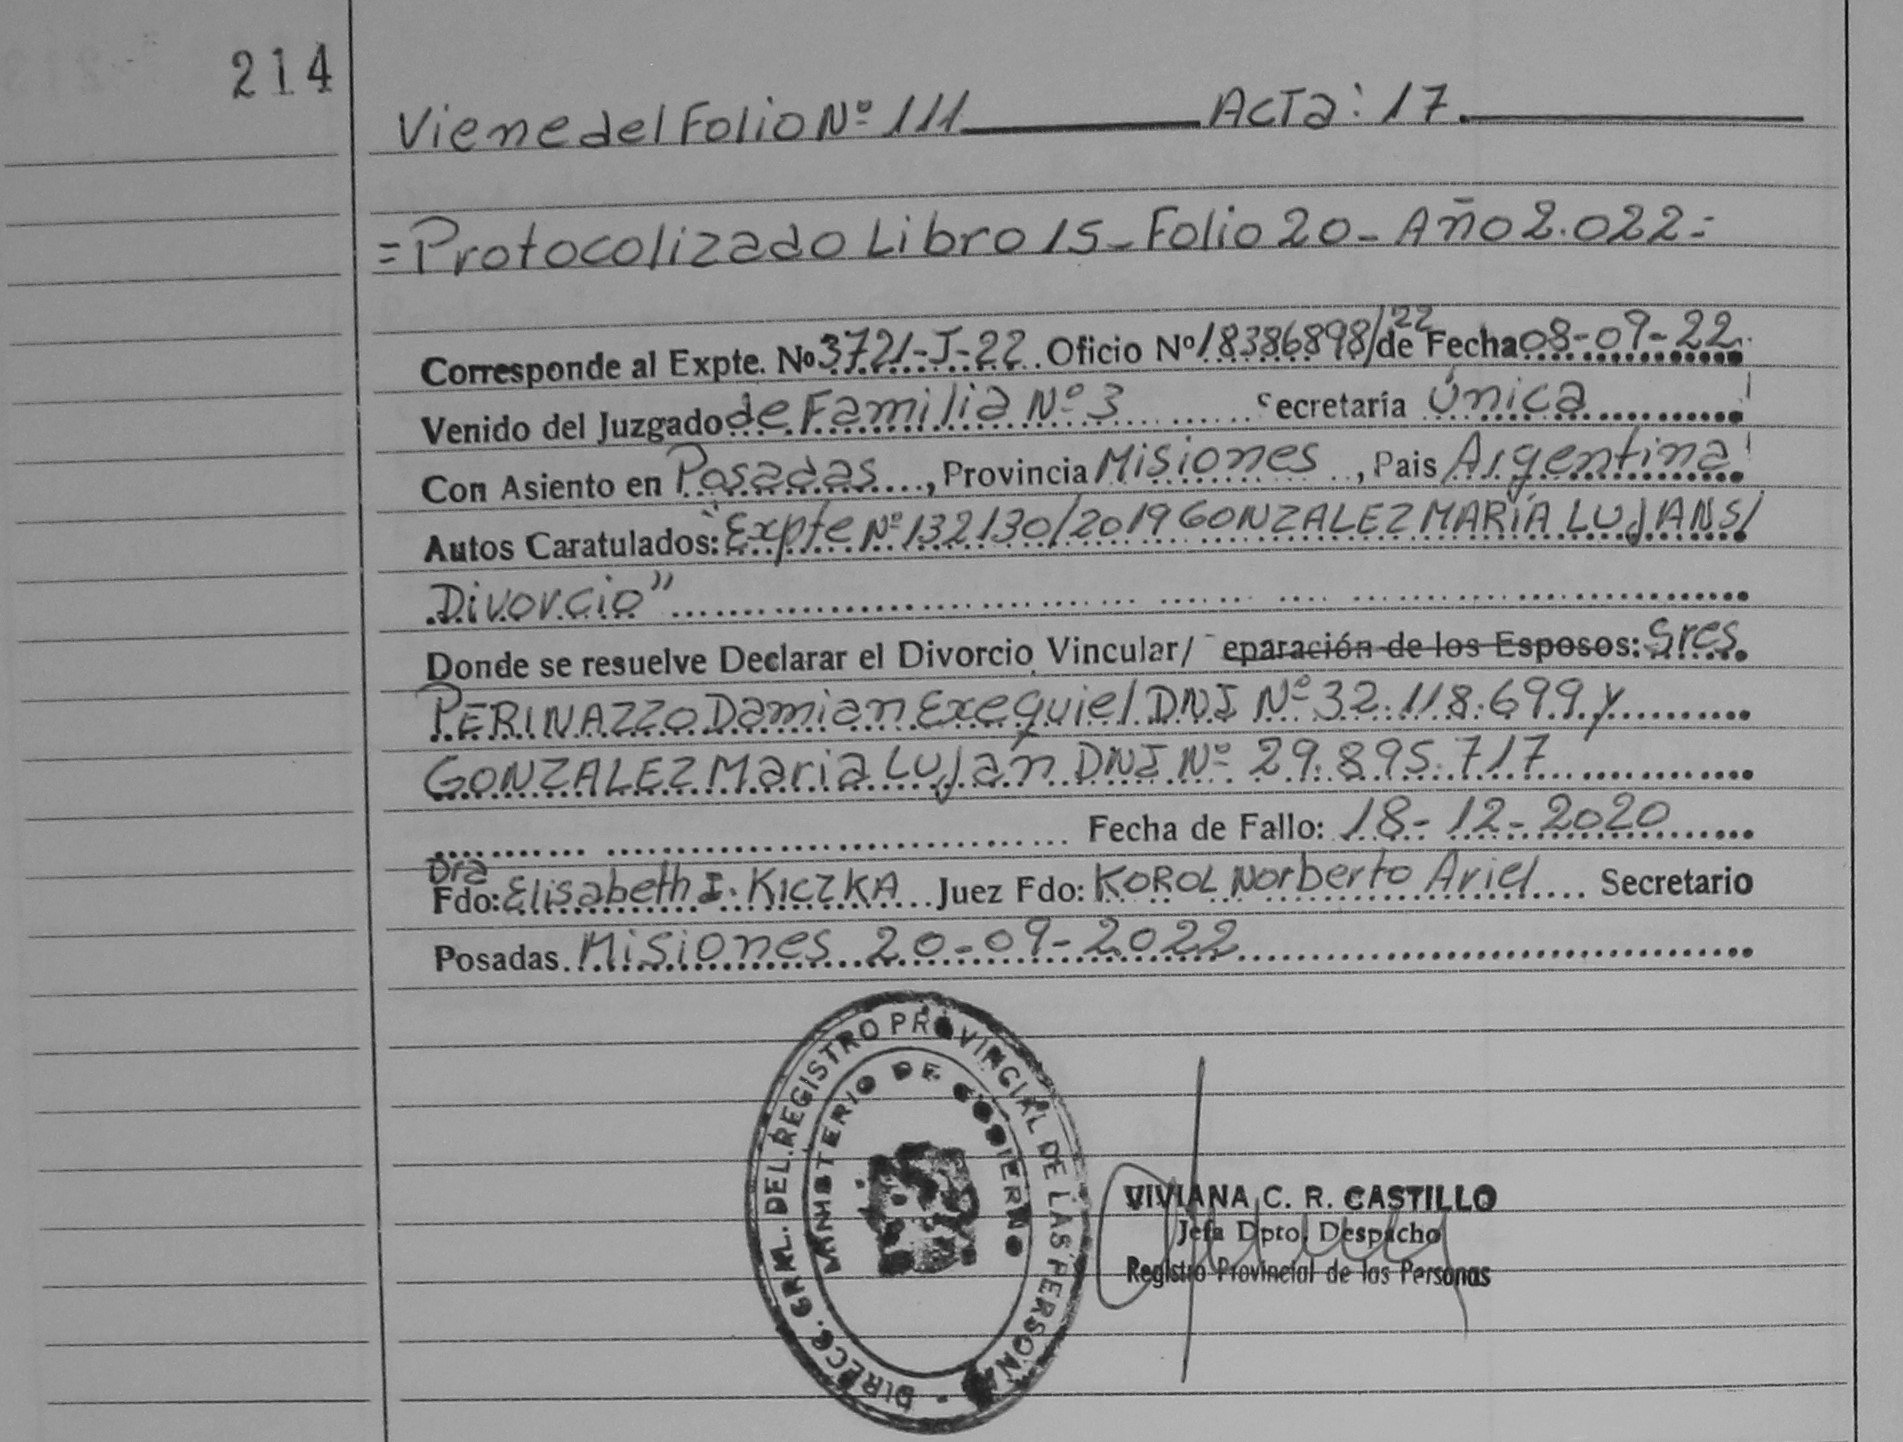 214
Viene del Folio Nº 111 Acta: 17.
=Protocolizado Libro 15_Folio 20_Año 2.022=
Corresponde al Expte. Nº 3721-J-22. Oficio Nº 18386898/22 de Fecha 08-09-22
Venido del Juzgado de Familia Nº 3 Secretaría Única
Con Asiento en Posadas, Provincia Misiones, Pais Argentina
Autos Caratulados: "Expte Nº 132130/2019 GONZALEZ MARÍA LUJAN S/
Divorcio"
Donde se resuelve Declarar el Divorcio Vincular/ eparación de los Esposos: Sres.
PERINAZZO Damian Exequiel DNI Nº 32.118.699 y
GONZALEZ Maria Luján DNI Nº 29.895.717
Fecha de Fallo: 18-12-2020
Dra
Fdo: Elisabeth I. KICZKA Juez Fdo: KOROL Norberto Ariel Secretario
Posadas. Misiones 20-09-2022
DIRECC. GRAL. DEL REGISTRO PROVINCIAL DE LAS PERSONAS
MINISTERIO DE GOBIERNO
VIVIANA C. R. CASTILLO
Jefa Dpto. Despacho
Registro Provincial de las Personas